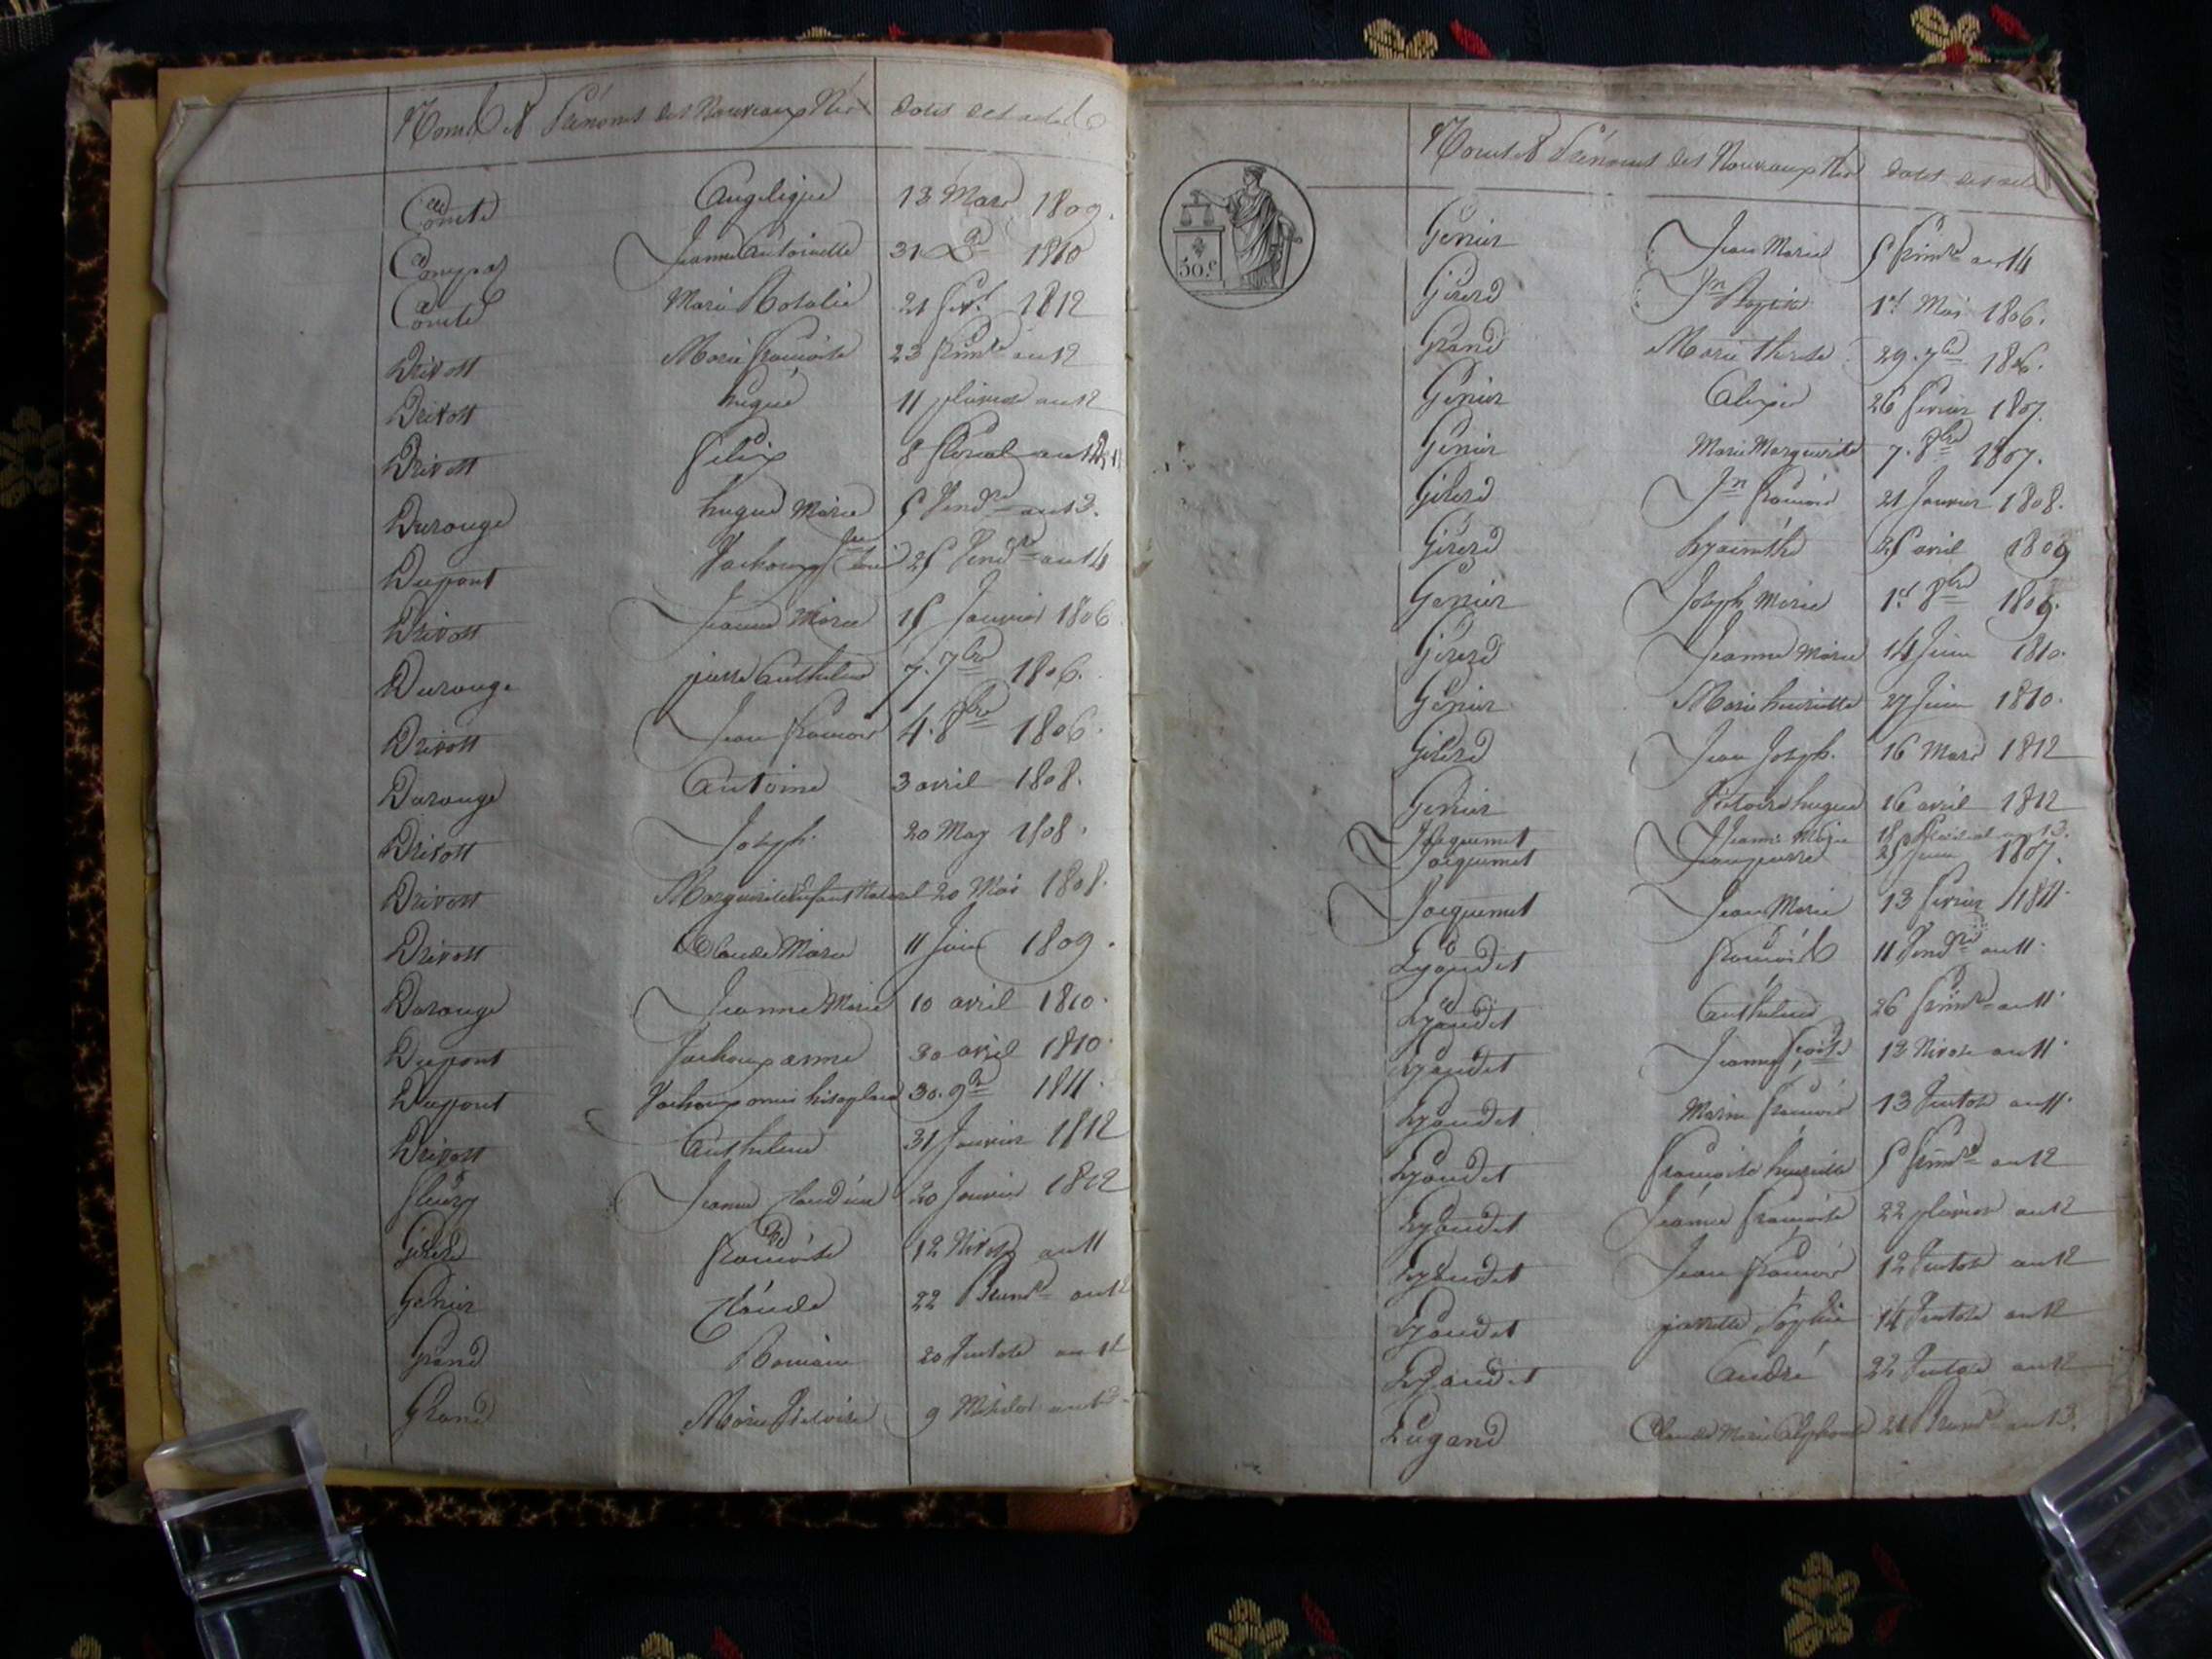 Noms et Prénoms des Nouveaux Nés dates des actes
Comte Angelique 13 Mars 1809.
Compas Jeanne Antoinette 31 1810
Comte Marie Rosalie 21 1812
Drivott Marie francoise 23 frimre an 12
Drivott hugue 11 pluviose an 12
Drivott felix 8 floreal
Durouge hugue Marie 5 Vendre an 13.
Dupont 25 Vendre an 14
Drivott Jeanne Marie 15 Janvier 1806
Durouge pierre Anthelme 7. 7bre 1806.
Drivott Jean francois 4. 8bre 1806.
Durouge Antoine 3 avril 1808.
Drivott Joseph. 20 May 1808.
Drivott Marguerite Enfant Naturel 20 Mai 1808.
Drivott Claude Marie 11 Juin 1809.
Durouge Jeanne Marie 10 avril 1810.
Dupont anne 30 avril 1810.
Dupont 30. 9bre 1811.
Drivott Anthelme 31 Janvier 1812
fleury Jeanne Claudine 20 Janvier 1812
Girerd francoise 12 Nivose an 11
Genier Claude 22 Brumre an 12
Grand Romain 20 Ventose an 12
Grand Marie Victoire 9 Messidor
Noms et Prénoms des Nouveaux Nés dates des
50.c
Genier Jean Marie 5 frimre an 14
Girerd Jn 1er Mai 1806.
Grand Marie Therese 29. 7bre 1806.
Genier Alexis 26 fevrier 1807.
Genier Marie Marguerite 7. 8bre 1807.
Girerd Jn francois 21 Janvier 1808.
Girerd hyacinthe avril 1809
Genier Joseph Marie 1er 8bre 1809.
Girerd Jeanne Marie 14 Juin 1810.
Genier Marie henriette 27 Juin 1810.
Girerd Jean Joseph. 16 Mars 1812
Genier Victoire hugue 16 avril 1812
Jacquemet Jeanne Marie 18 an 13.
Jacquemet Jean pierre 25 Juin 1807.
Jacquemet Jean Marie 13 fevrier 1811.
Lyaudet francois 11 Vendre an 11.
Lyaudet Anthelme 26 frimre an 11.
Lyaudet Jeanne fcoise 12 Nivose an 11.
Lyaudet Marie francois 13 Ventose an 11.
Lyaudet francoise henriette 5 frimre an 12
Lyaudet Jeanne francoise 22 pluviose an 12
Lyaudet Jean francois 12 Ventose an 12
Lyaudet pierrette Sophie 14 Ventose an 12
Lyaudet André 22 Ventose an 12
Lugand Claude Marie Alphonse 21 Brumre an 13.